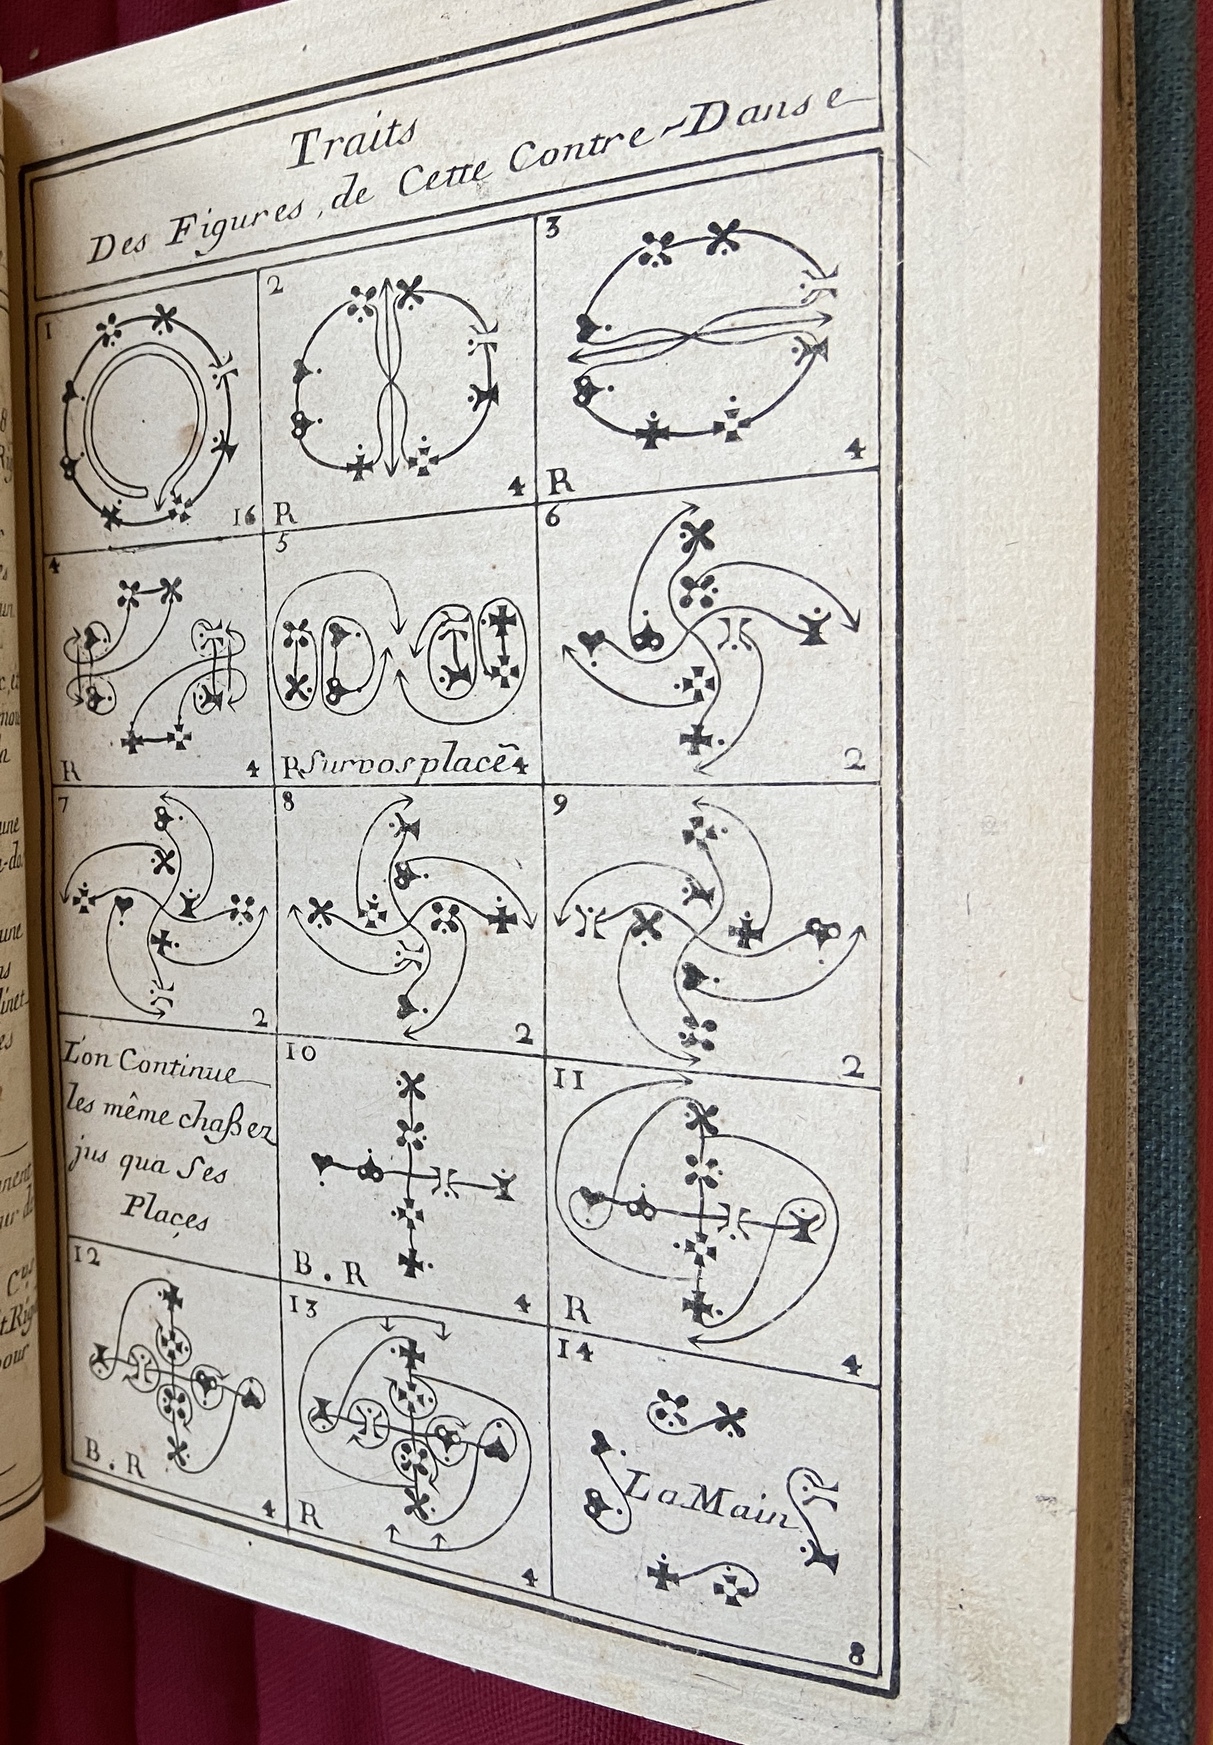 Traits
Des Figures, de Cette Contre-Danse
1
16
2
R
4
3
R
4
4
R
4
5
R Sur vos placẽ 4
6
2
7
2
8
2
9
2
L'on Continue
les même chaßez
jus qua Ses
Plaçes
10
B. R
4
11
R
4
12
B. R
4
13
R
4
14
La Main
8